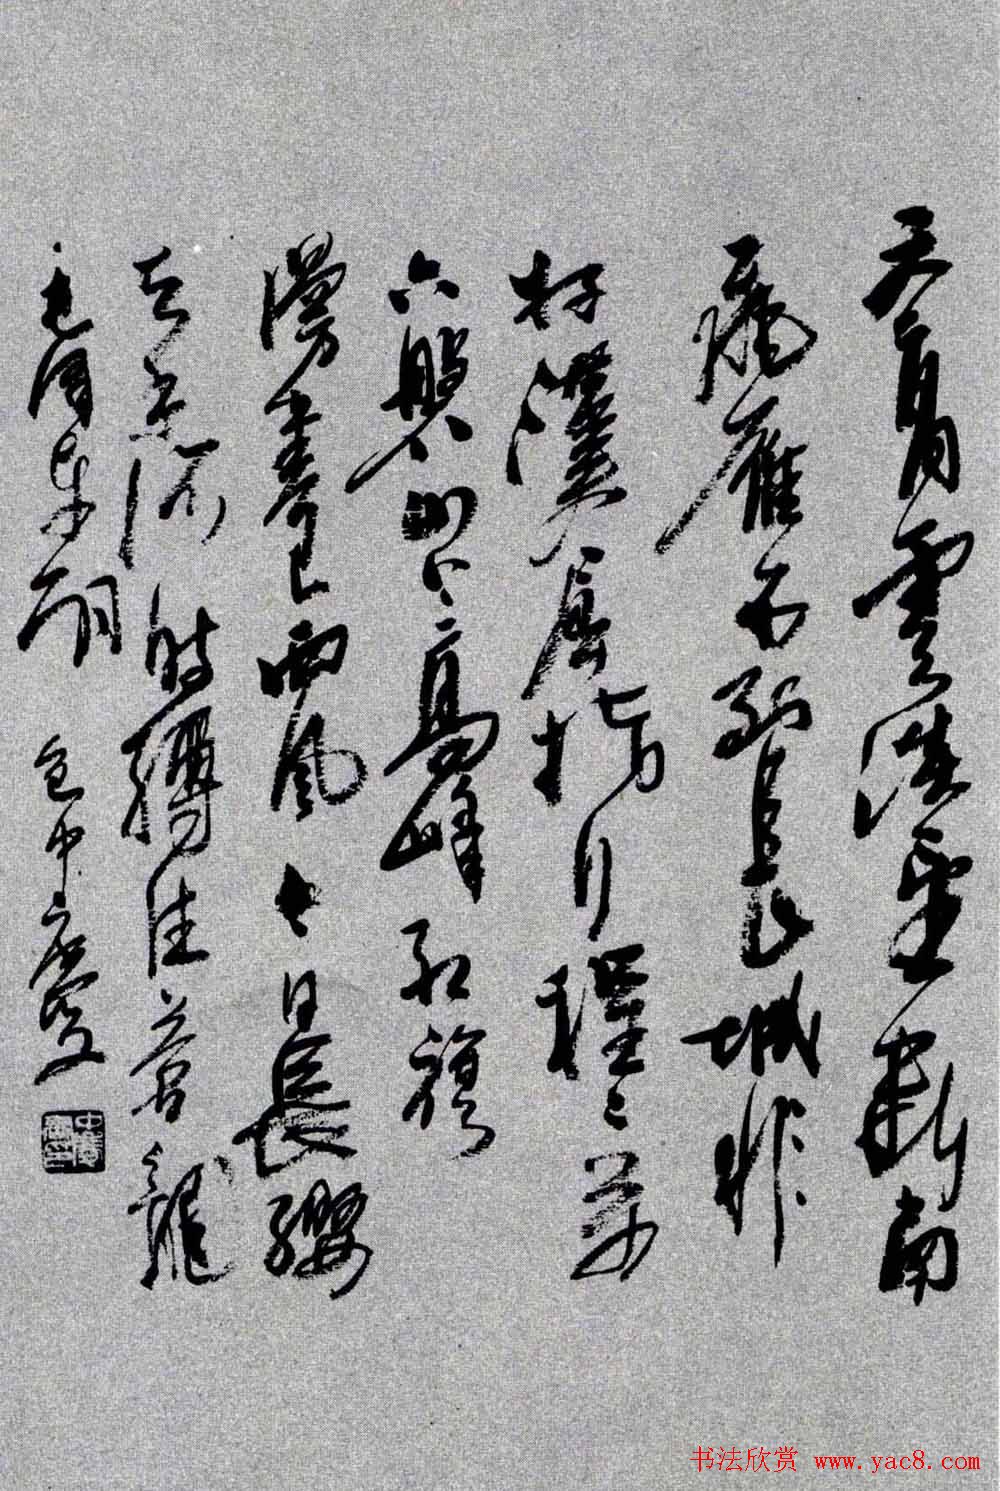 天高雲淡望斷南
飛雁不到長城非
好漢屈指行程二萬
六盤山上高峰紅旗
漫卷西風今日長纓
在手何時縛住蒼龍
毛澤東詞 包中慶
书法欣赏 www.yac8.com